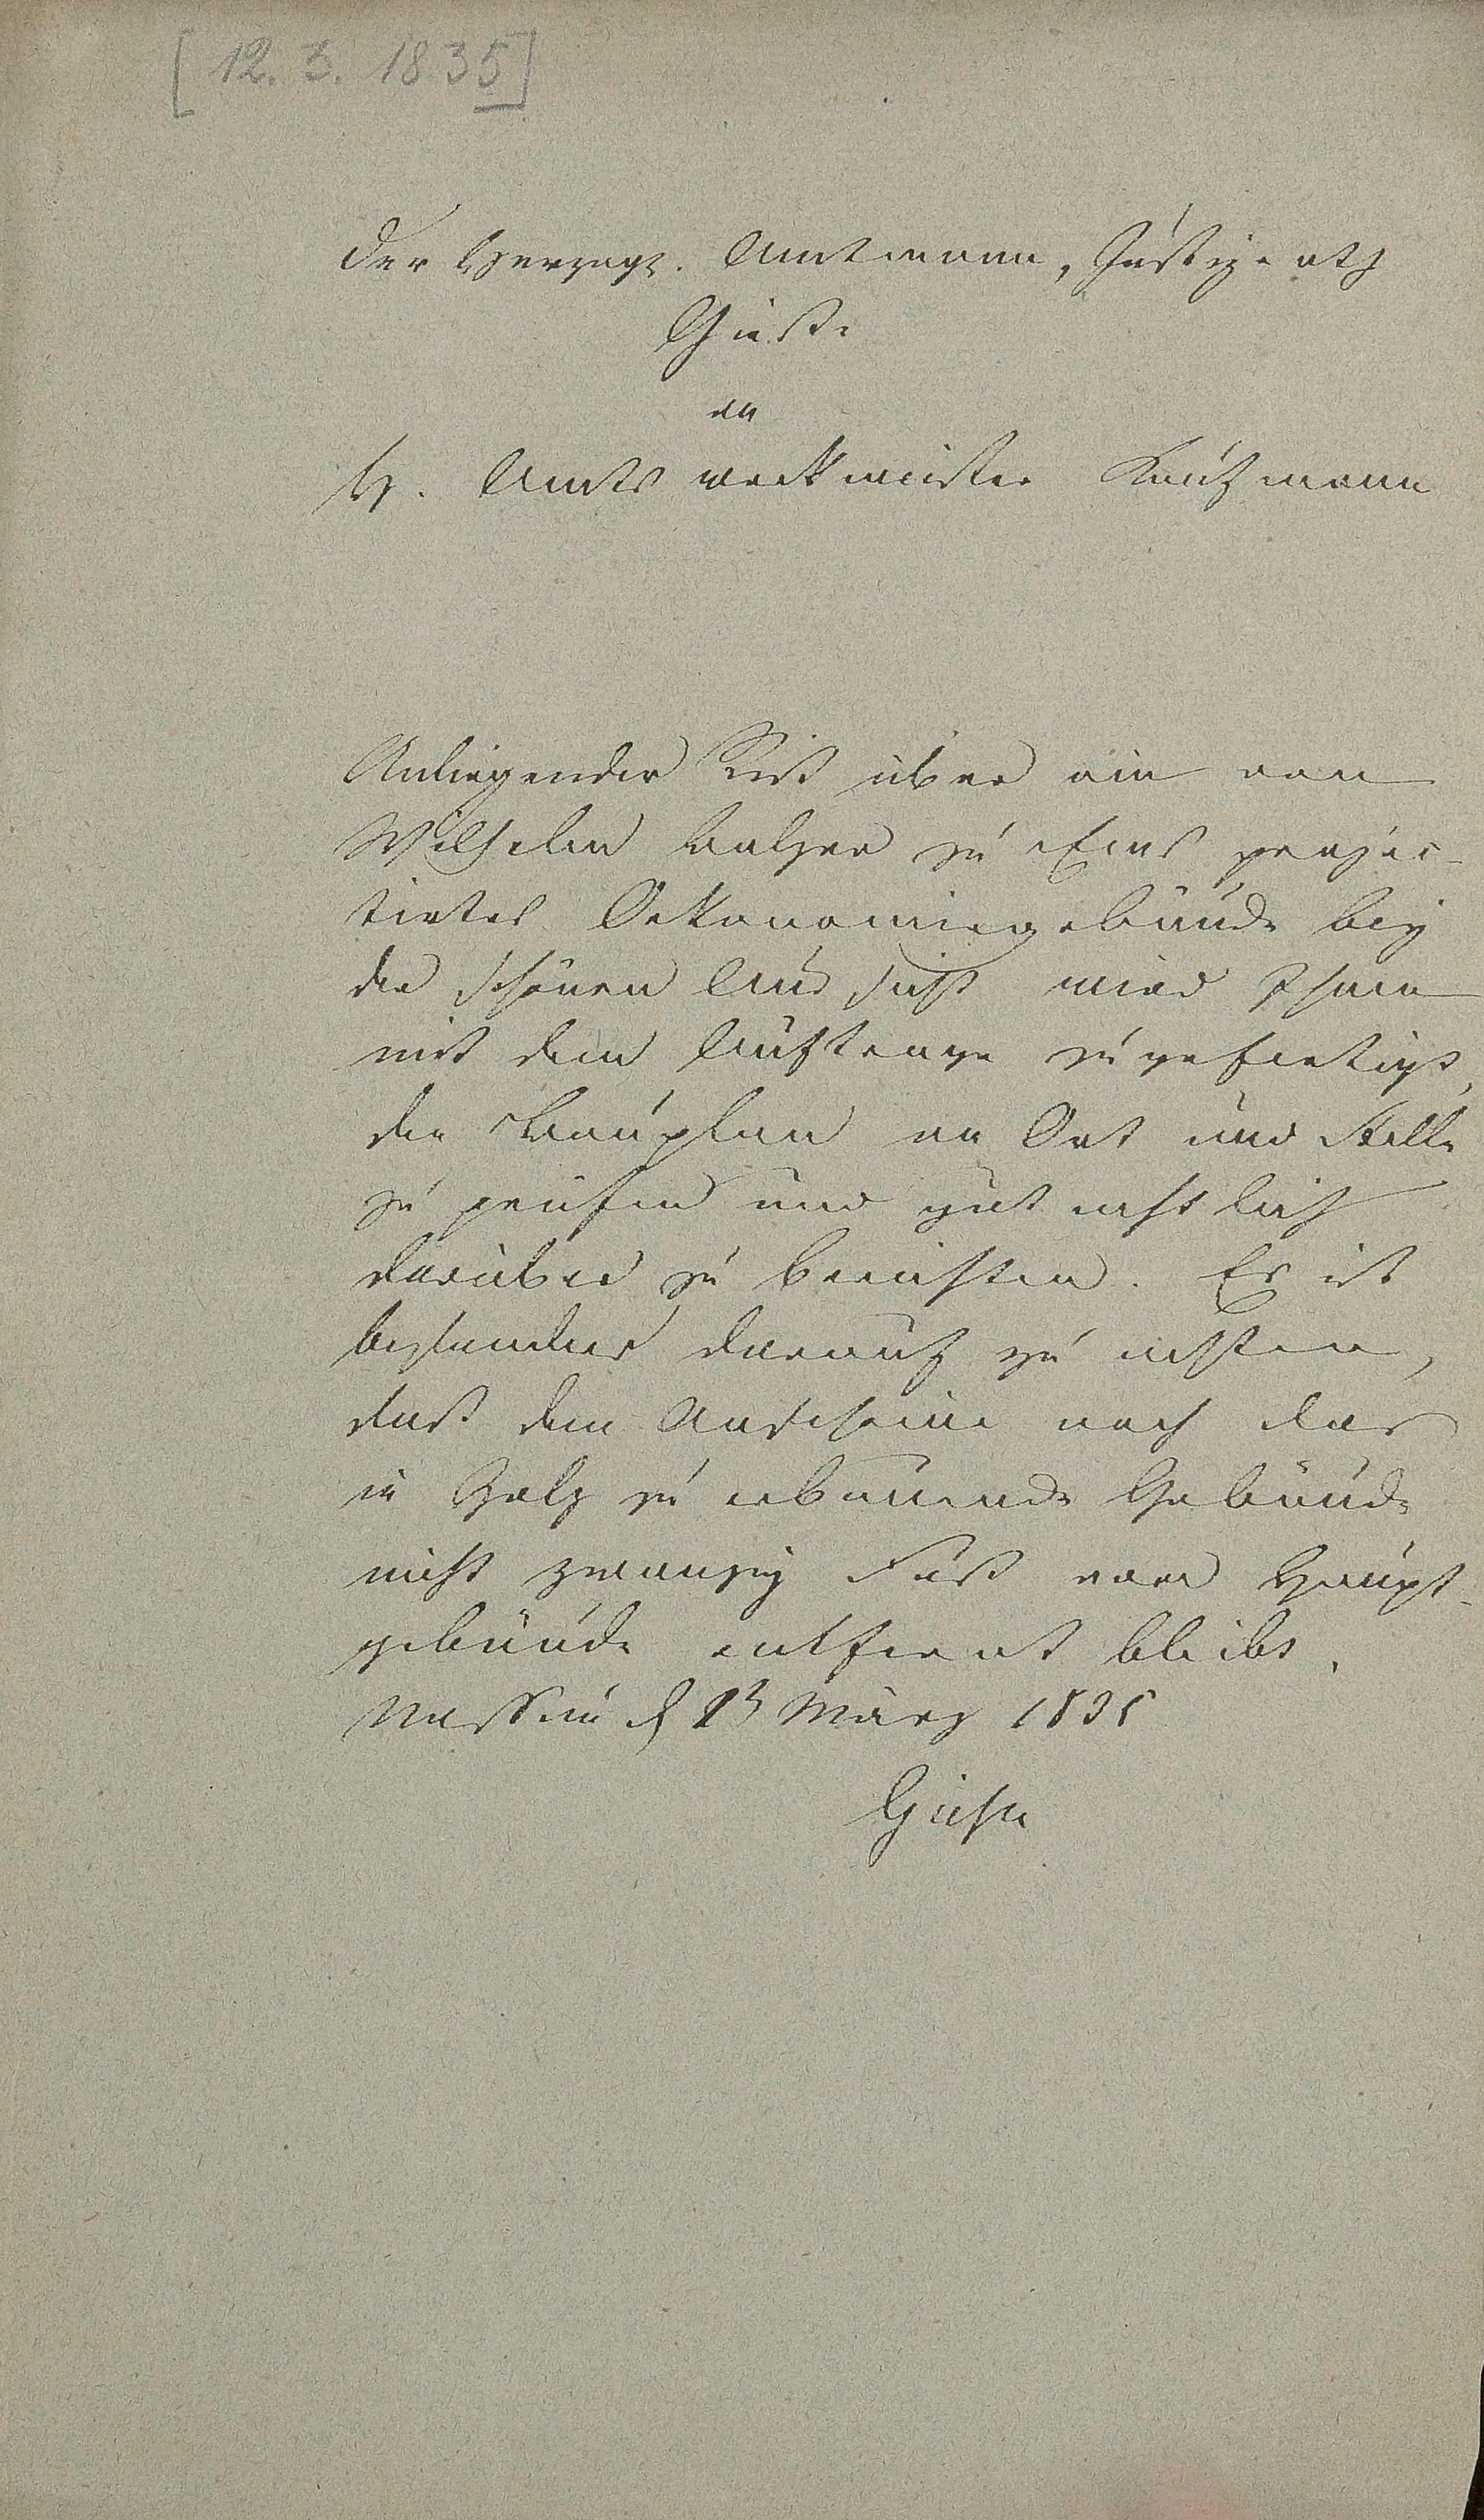 [12. 3. 1835]
Der Herzogl. Amtmann, Justizrath
Giesse
an
H. Amtswerkmeister Kaufmann
Anliegender Riß über ein von
Wilhelm Balzer zu Ems projec-
tirtes Oekonomiegebäude bey
der schönen Aussicht wird Ihnen
mit dem Auftrage zugefertigt,
den Bauplan an Ort und Stelle
zu prüfen und gutachtlich
darüber zu berichten. Es ist
besonders darauf zu achten,
daß dem Anscheine nach das
in Holz zu erbauende Gebäude
nicht zwanzig Fuß vom Haupt-
gebäude entfernt bleibt.
Nassau d 13 März 1835
Giesse